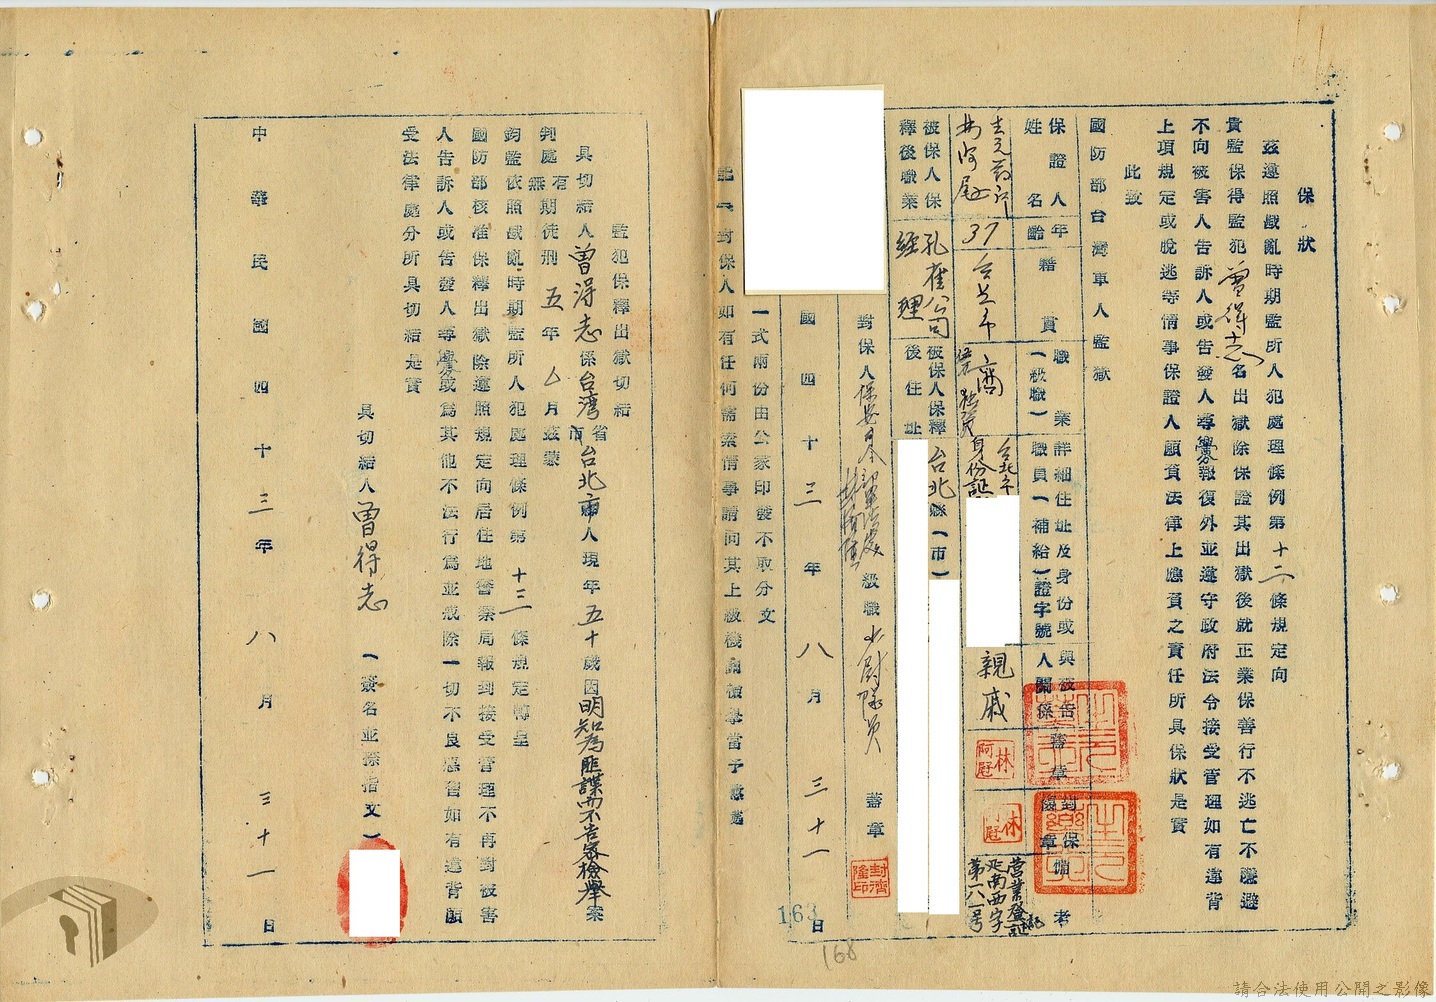 保狀
茲遵照戡亂時期監所人犯處理條例第十二條規定向
貴監保得監犯曾得志名出獄除保證其出獄後就正業保善行不逃亡不賺避
不向被害人告訴人或告發人尋釁報復外並遵守政府法令接受管理如有違背
上項規定或脫逃等情事保證人願負法律上應負之責任所具保狀是實
此致
國防部台灣軍人監獄
保證人姓名
年齡
籍貫
職業(級職)
詳細住址及身份或職員(補給)證字號
與被告人關係
蓋章
對保後蓋章
備考
林阿屘
37
台北市
商
台北市
身份証
親戚
林阿屘
營業登記証
延南西字
第一八一号
被保人保釋後職業
孔雀公司
經理
被保人保釋後住址
台北縣(市)
對保人
級職少尉隊員
蓋章
國四十三年八月三十一日
163
168
一式兩份由公家印發不取分文
對保人如有任何需索情事請向其上級機關檢舉當予懲處
監犯保釋出獄切結
具切結人曾得志係台灣省市台北市人現年五十歲因明知為匪諜而不告密檢舉案
判處有無期徒刑五年乙月茲蒙
鈞監依照戡亂時期監所人犯處理條例第十三條規定轉呈
國防部核准保釋出獄除遵照規定向居住地警察局報到接受管理不再對被害
人告訴人或告發人尋釁或為其他不法行為並戒除一切不良惡習如有違背願
受法律處分所具切結是實
具切結人曾得志(簽名並捺指文)
中華民國四十三年八月三十一日
請合法使用公開之影像